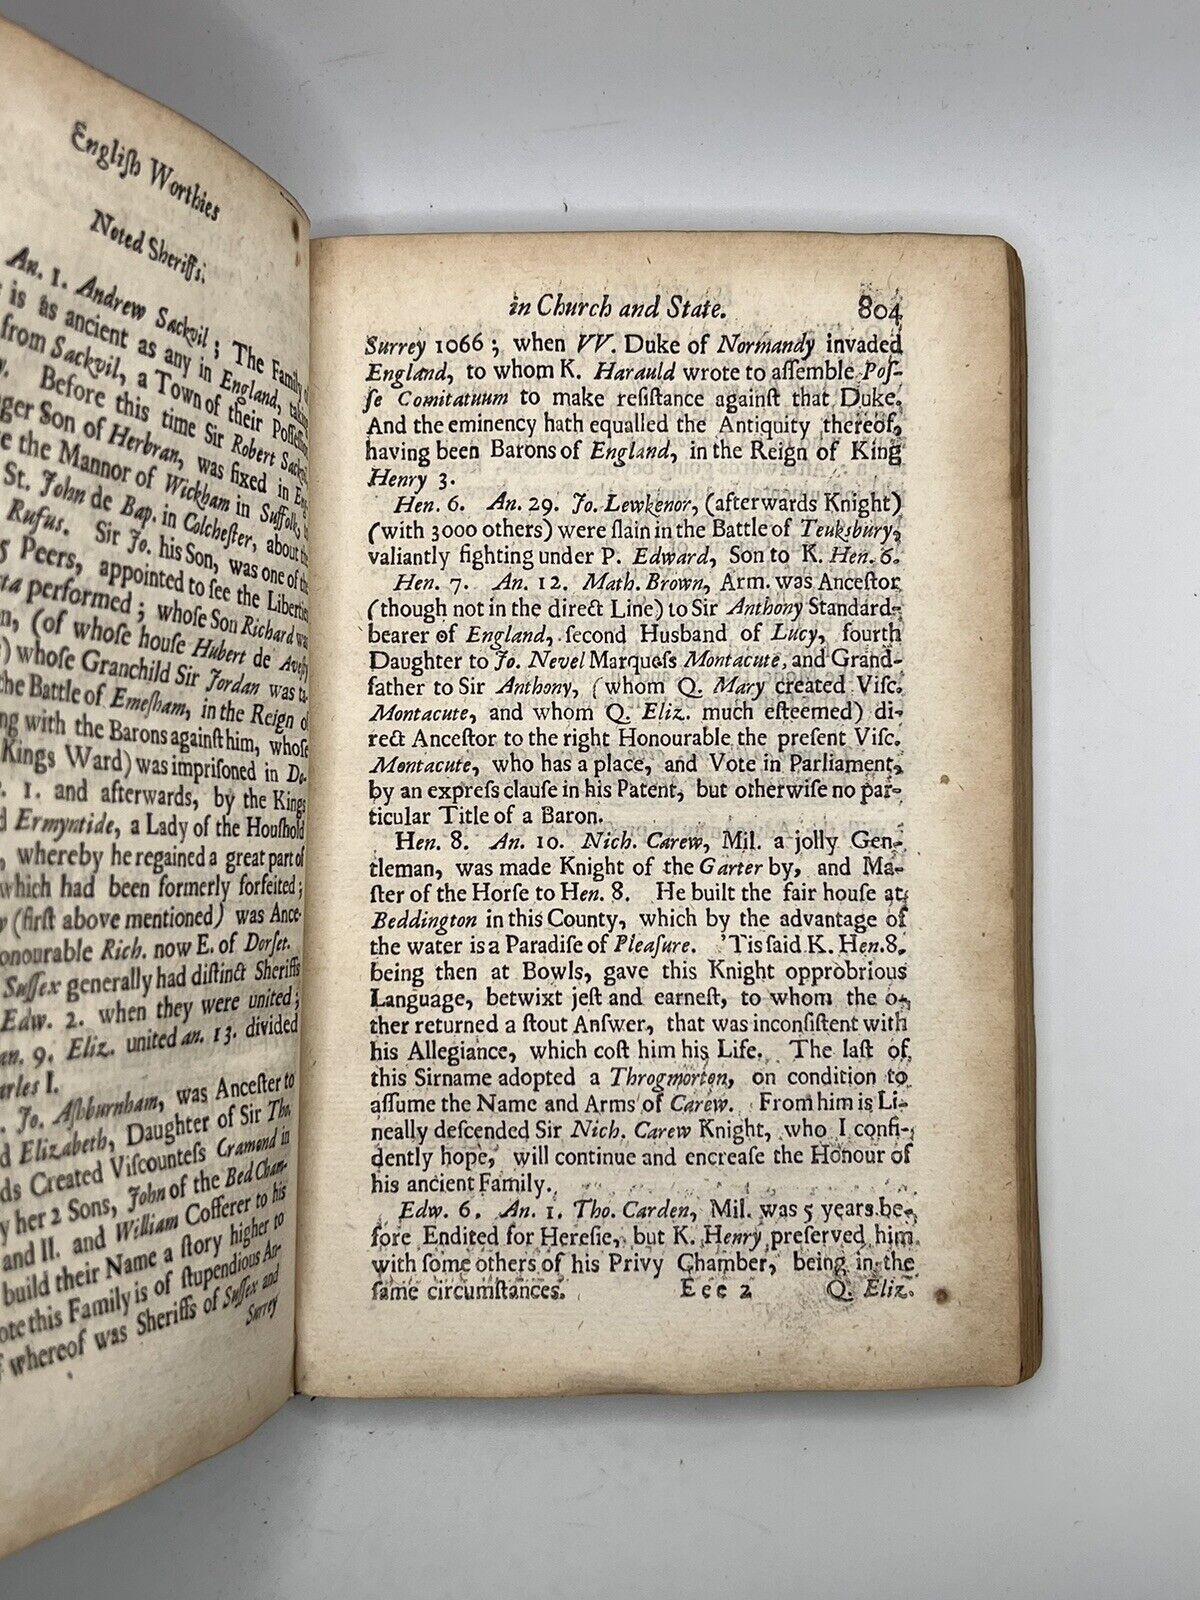 English Worthies
Noted Sheriffs.
An. 1. Andrew Sackvil; The Family of
is as ancient as any in England, taking
from Sackvil, a Town of their Possession
Before this time Sir Robert Sackvil
ger Son of Herbran, was fixed in Eng
e the Mannor of Wickham in Suffolk,
St. John de Bap. in Colchester, about the
Rufus. Sir Jo. his Son, was one of the
5 Peers, appointed to see the Liberties
ta performed; whose Son Richard was
n, (of whose house Hubert de
) whose Granchild Sir Jordan was ta-
the Battle of Emesham, in the Reign of
ng with the Barons against him, whose
Kings Ward) was imprisoned in Do-
. 1. and afterwards, by the Kings
d Ermyntide, a Lady of the Houshold
, whereby he regained a great part of
which had been formerly forfeited;
y (first above mentioned) was Ance-
onourable Rich. now E. of Dorset.
Sussex generally had distinct Sheriffs
Edw. 2. when they were united;
an. 9. Eliz. united an. 13. divided
harles I.
. Jo. Ashburnham, was Ancester to
d Elizabeth, Daughter of Sir Tho.
ds Created Viscountess Cramond in
y her 2 Sons, John of the Bed Cham-
and II. and William Cofferer to his
build their Name a story higher to
ote this Family is of stupendious An-
f whereof was Sheriffs of Sussex and
Surrey
in Church and State. 804
Surrey 1066; when VV. Duke of Normandy invaded
England, to whom K. Harauld wrote to assemble Pos-
se Comitatuum to make resistance against that Duke.
And the eminency hath equalled the Antiquity thereof,
having been Barons of England, in the Reign of King
Henry 3.
Hen. 6. An. 29. Jo. Lewkenor, (afterwards Knight)
(with 3000 others) were slain in the Battle of Teuksbury,
valiantly fighting under P. Edward, Son to K. Hen. 6.
Hen. 7. An. 12. Math. Brown, Arm. was Ancestor
(though not in the direct Line) to Sir Anthony Standard-
bearer of England, second Husband of Lucy, fourth
Daughter to Jo. Nevel Marquess Montacute, and Grand-
father to Sir Anthony, (whom Q. Mary created Visc.
Montacute, and whom Q. Eliz. much esteemed) di-
rect Ancestor to the right Honourable the present Visc.
Montacute, who has a place, and Vote in Parliament,
by an express clause in his Patent, but otherwise no par-
ticular Title of a Baron.
Hen. 8. An. 10. Nich. Carew, Mil. a jolly Gen-
tleman, was made Knight of the Garter by, and Ma-
ster of the Horse to Hen. 8. He built the fair house at
Beddington in this County, which by the advantage of
the water is a Paradise of Pleasure. 'Tis said K. Hen. 8.
being then at Bowls, gave this Knight opprobrious
Language, betwixt jest and earnest, to whom the o-
ther returned a stout Answer, that was inconsistent with
his Allegiance, which cost him his Life. The last of
this Sirname adopted a Throgmorton, on condition to
assume the Name and Arms of Carew. From him is Li-
neally descended Sir Nich. Carew Knight, who I confi-
dently hope, will continue and encrease the Honour of
his ancient Family.
Edw. 6. An. 1. Tho. Carden, Mil. was 5 years be-
fore Endited for Heresie, but K. Henry preserved him
with some others of his Privy Chamber, being in the
same circumstances. Eee 2 Q. Eliz.